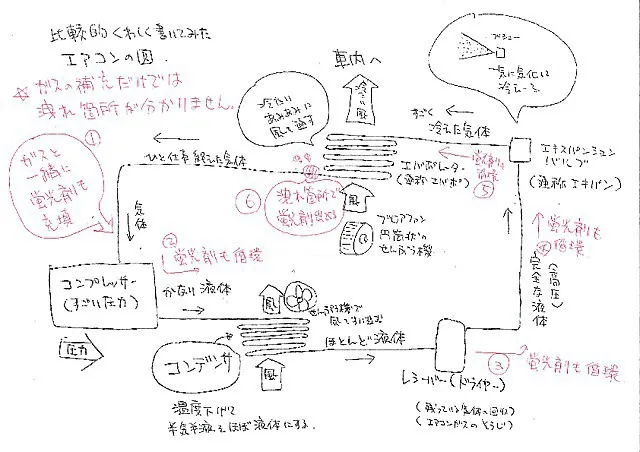 比較的くわしく書いてみた
エアコンの図.
※ガスの補充だけでは
洩れ箇所が分かりません。
①
ガスと
一緒に
蛍光剤も
充填
冷たい
あみあみに
風を通す
車内へ
冷たい風
ブシュー
一気に気化し
冷えーる
すごく
冷えた気体
エキスパンション
バルブ
(通称エキパン)
ひと仕事終えた気体
エバポレーター
(通称エバポ)
蛍光剤も
循環
⑤
⑥
洩れ箇所で
蛍光剤出る
風
ブロアファン
円筒状の
せんぷう機
気体
②
蛍光剤も循環
④
蛍光剤も
循環
(高圧)
完全な液体
コンプレッサー
(すごい圧力)
圧力
かなり液体
風
せんぷう機で
コンデンサ
風
ほとんど液体
温度下げて
半気半液をほぼ液体にする.
レシーバー(ドライヤー)
(残っている気体の回収)
(エアコンガスのそうじ)
③
蛍光剤も循環